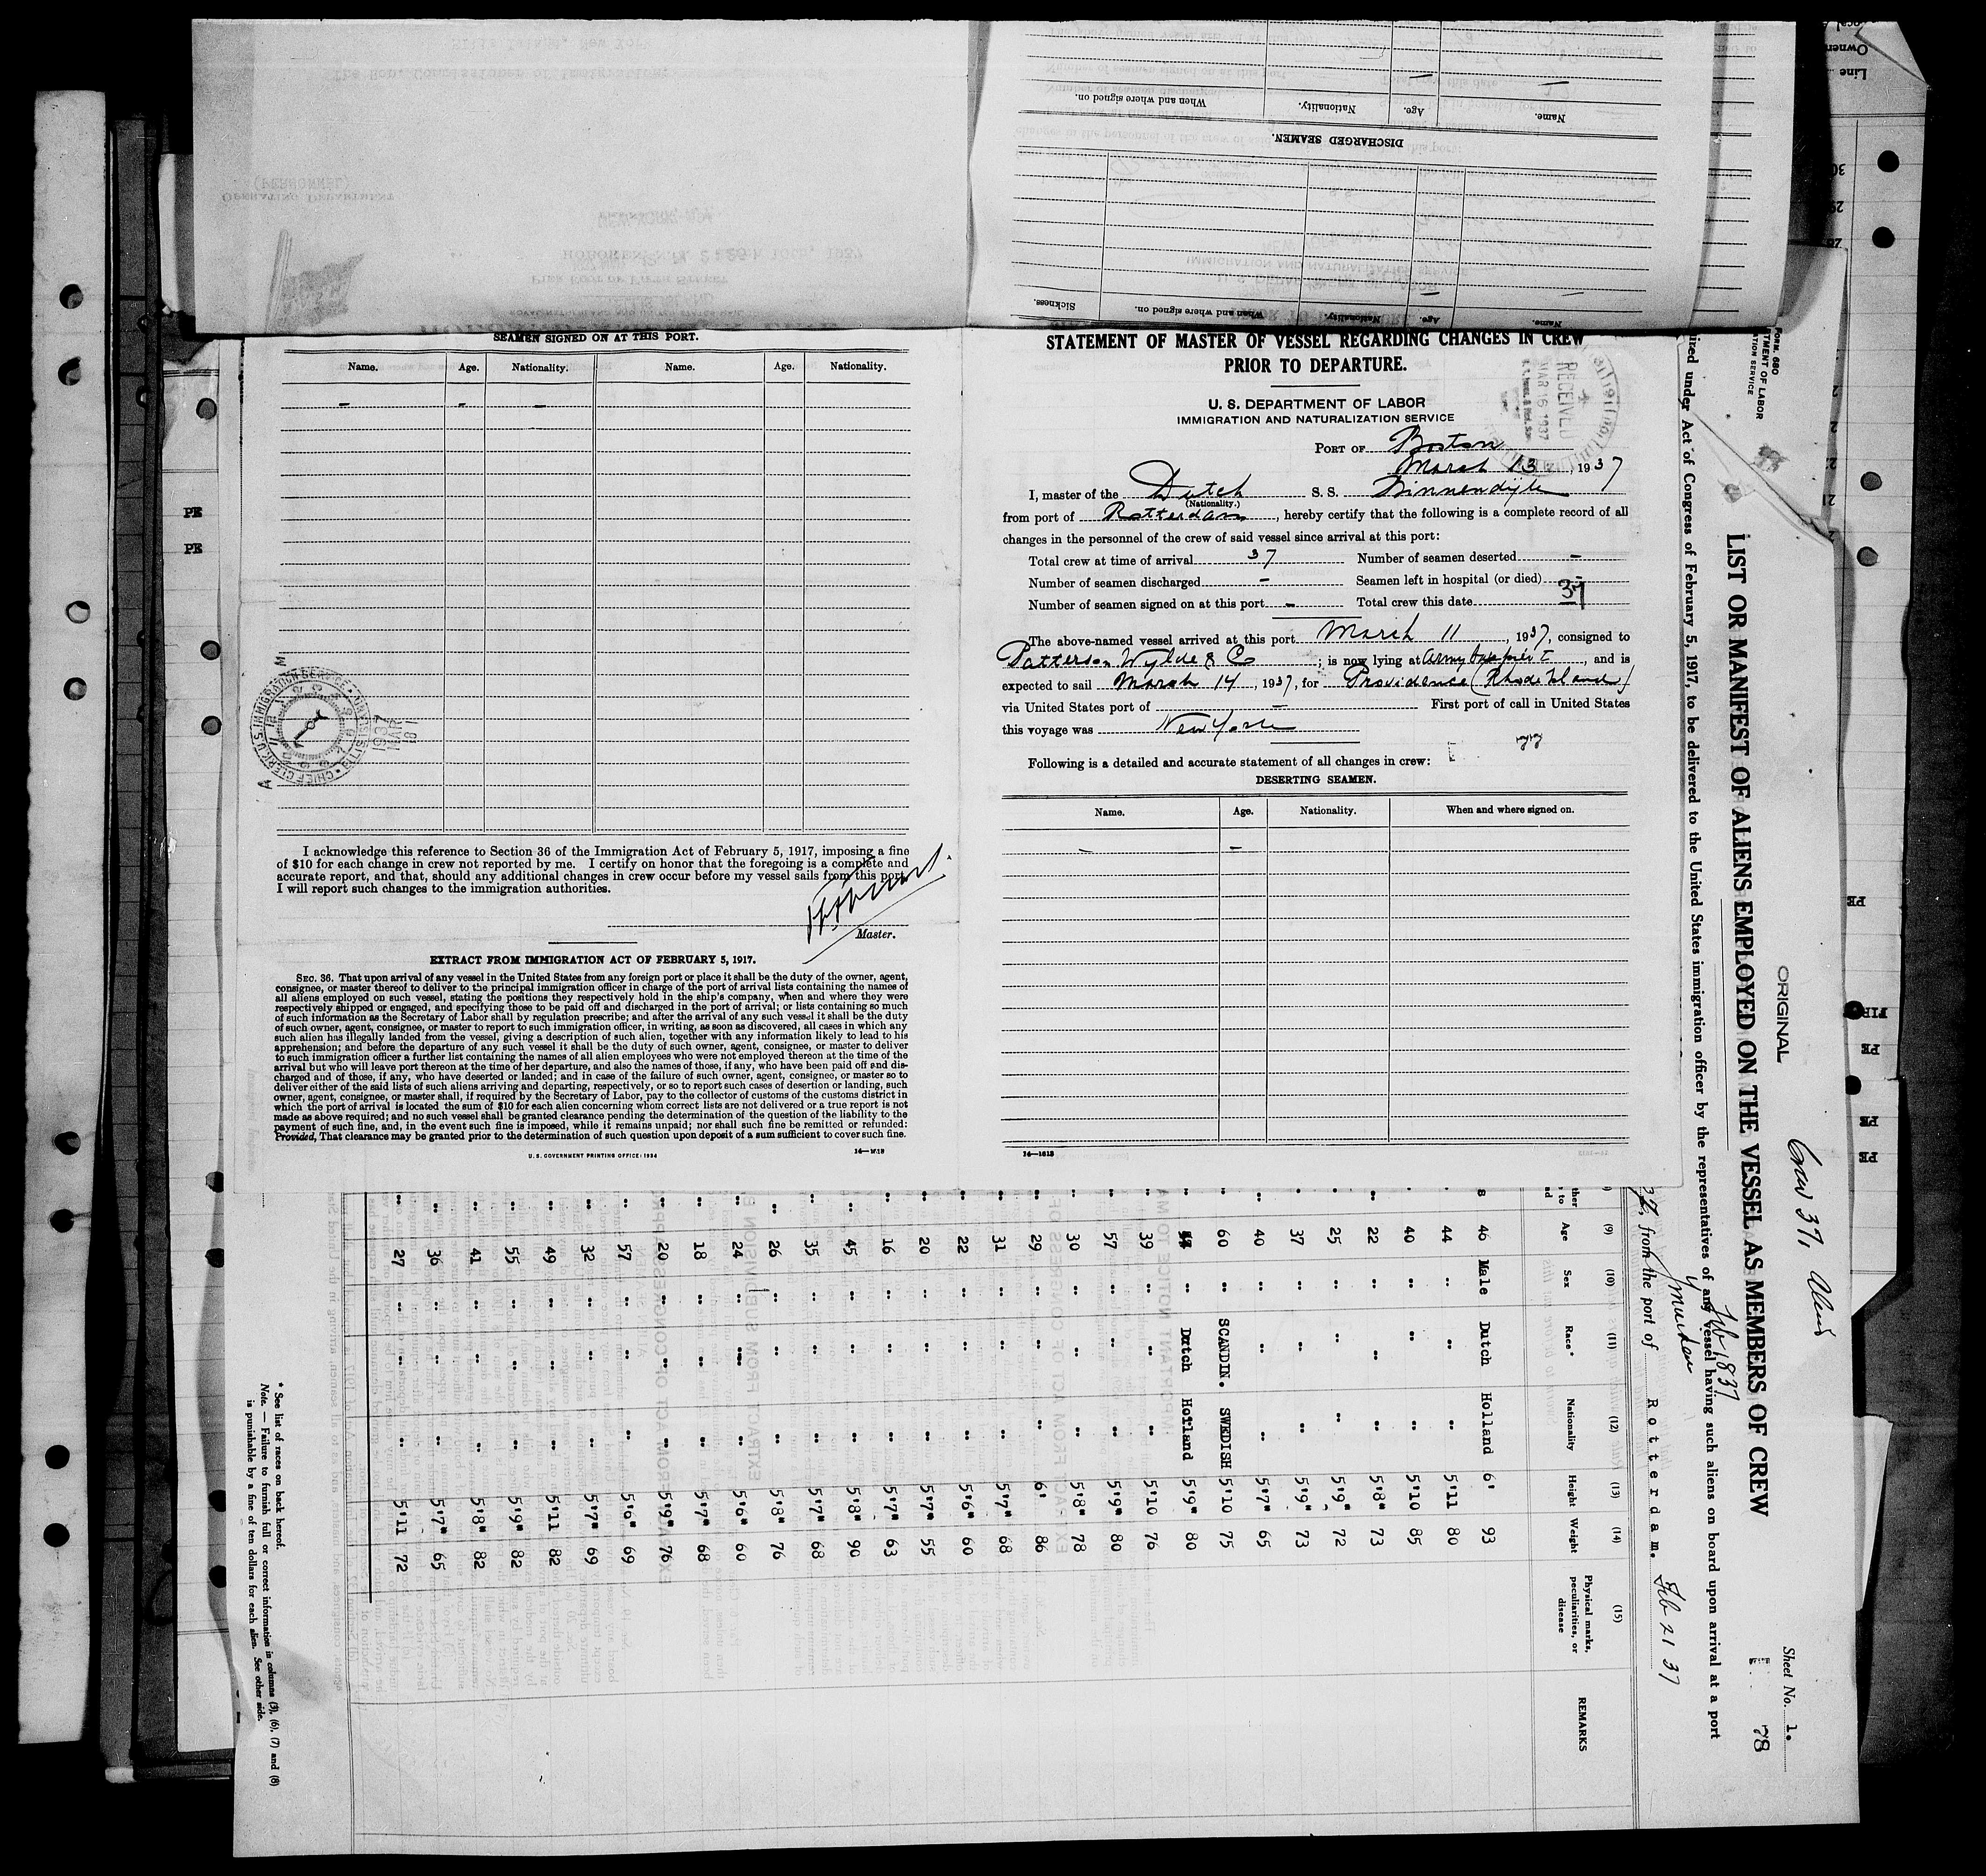 SEAMEN SIGNED ON AT THIS PORT.
Name. Age. Nationality. Name. Age. Nationality.
– – –
I acknowledge this reference to Section 36 of the Immigration Act of February 5, 1917, imposing a fine
of $10 for each change in crew not reported by me. I certify on honor that the foregoing is a complete and
accurate report, and that, should any additional changes in crew occur before my vessel sails from this port,
I will report such changes to the immigration authorities.
Master.
EXTRACT FROM IMMIGRATION ACT OF FEBRUARY 5, 1917.
SEC. 36. That upon arrival of any vessel in the United States from any foreign port or place it shall be the duty of the owner, agent,
consignee, or master thereof to deliver to the principal immigration officer in charge of the port of arrival lists containing the names of
all aliens employed on such vessel, stating the positions they respectively hold in the ship's company, when and where they were
respectively shipped or engaged, and specifying those to be paid off and discharged in the port of arrival; or lists containing so much
of such information as the Secretary of Labor shall by regulation prescribe; and after the arrival of any such vessel it shall be the duty
of such owner, agent, consignee, or master to report to such immigration officer, in writing, as soon as discovered, all cases in which any
such alien has illegally landed from the vessel, giving a description of such alien, together with any information likely to lead to his
apprehension; and before the departure of any such vessel it shall be the duty of such owner, agent, consignee, or master to deliver
to such immigration officer a further list containing the names of all alien employees who were not employed thereon at the time of the
arrival but who will leave port thereon at the time of her departure, and also the names of those, if any, who have been paid off and dis-
charged and of those, if any, who have deserted or landed; and in case of the failure of such owner, agent, consignee, or master so to
deliver either of the said lists of such aliens arriving and departing, respectively, or so to report such cases of desertion or landing, such
owner, agent, consignee, or master shall, if required by the Secretary of Labor, pay to the collector of customs of the customs district in
which the port of arrival is located the sum of $10 for each alien concerning whom correct lists are not delivered or a true report is not
made as above required; and no such vessel shall be granted clearance pending the determination of the question of the liability to the
payment of such fine, and, in the event such fine is imposed, while it remains unpaid; nor shall such fine be remitted or refunded:
Provided, That clearance may be granted prior to the determination of such question upon deposit of a sum sufficient to cover such fine.
U. S. GOVERNMENT PRINTING OFFICE: 1934
STATEMENT OF MASTER OF VESSEL REGARDING CHANGES IN CREW
PRIOR TO DEPARTURE.
U. S. DEPARTMENT OF LABOR
IMMIGRATION AND NATURALIZATION SERVICE
RECEIVED
MAR 16 1937
PORT OF Boston
March 13, 1937
I, master of the Dutch S. S. Binnendijk
(Nationality.)
from port of Rotterdam, hereby certify that the following is a complete record of all
changes in the personnel of the crew of said vessel since arrival at this port:
Total crew at time of arrival 37 Number of seamen deserted –
Number of seamen discharged – Seamen left in hospital (or died) –
Number of seamen signed on at this port – Total crew this date 37
The above-named vessel arrived at this port March 11, 1937, consigned to
Patterson Wylde & Co; is now lying at Army, and is
expected to sail March 14, 1937, for Providence (Rhode Island)
via United States port of – First port of call in United States
this voyage was New York
Following is a detailed and accurate statement of all changes in crew:
DESERTING SEAMEN.
Name. Age. Nationality. When and where signed on.
– –
14—1613
DISCHARGED SEAMEN.
Name. Age. Nationality. When and where signed on.
Name. Age. Nationality. When and where signed on. Sickness.
ORIGINAL
Crew 37,
Sheet No. 1.
78
LIST OR MANIFEST OF ALIENS EMPLOYED ON THE VESSEL AS MEMBERS OF CREW
ired under Act of Congress of February 5, 1917, to be delivered to the United States immigration officer by the representatives of any vessel having such aliens on board upon arrival at a port
Feb 18 37
Ymuiden
from the port of Rotterdam. Feb 21 37
(9) (10) (11) (12) (13) (14) (15)
Age Sex Race* Nationality Height Weight Physical marks, peculiarities, or disease REMARKS
46 Male Dutch Holland 6' 93
44 " " " 5'11 80
40 " " " 5'10 85
22 " " " 5'8" 73
25 " " " 5'9" 72
37 " " " 5'9" 73
40 " " " 5'7" 65
60 " SCANDIN. SWEDISH 5'10 75
" Dutch Holland 5'9" 80
39 " " " 5'10 76
57 " " " 5'9" 80
30 " " " 5'8" 78
29 " " " 6' 86
31 " " " 5'7" 68
22 " " " 5'6" 60
20 " " " 5'7" 55
16 " " " 5'7" 63
45 " " " 5'8" 90
35 " " " 5'7" 68
26 " " " 5'8" 76
24 " " " 5'6" 60
18 " " " 5'7" 68
20 " " " 5'9" 76
57 " " " 5'6" 69
32 " " " 5'7" 69
49 " " " 5'11 82
55 " " " 5'9" 82
41 " " " 5'8" 82
36 " " " 5'7" 65
27 " " " 5'11 72
* See list of races on back hereof.
Note. — Failure to furnish full or correct information in columns (3), (6), (7) and (8)
is punishable by a fine of ten dollars for each alien. See other side.